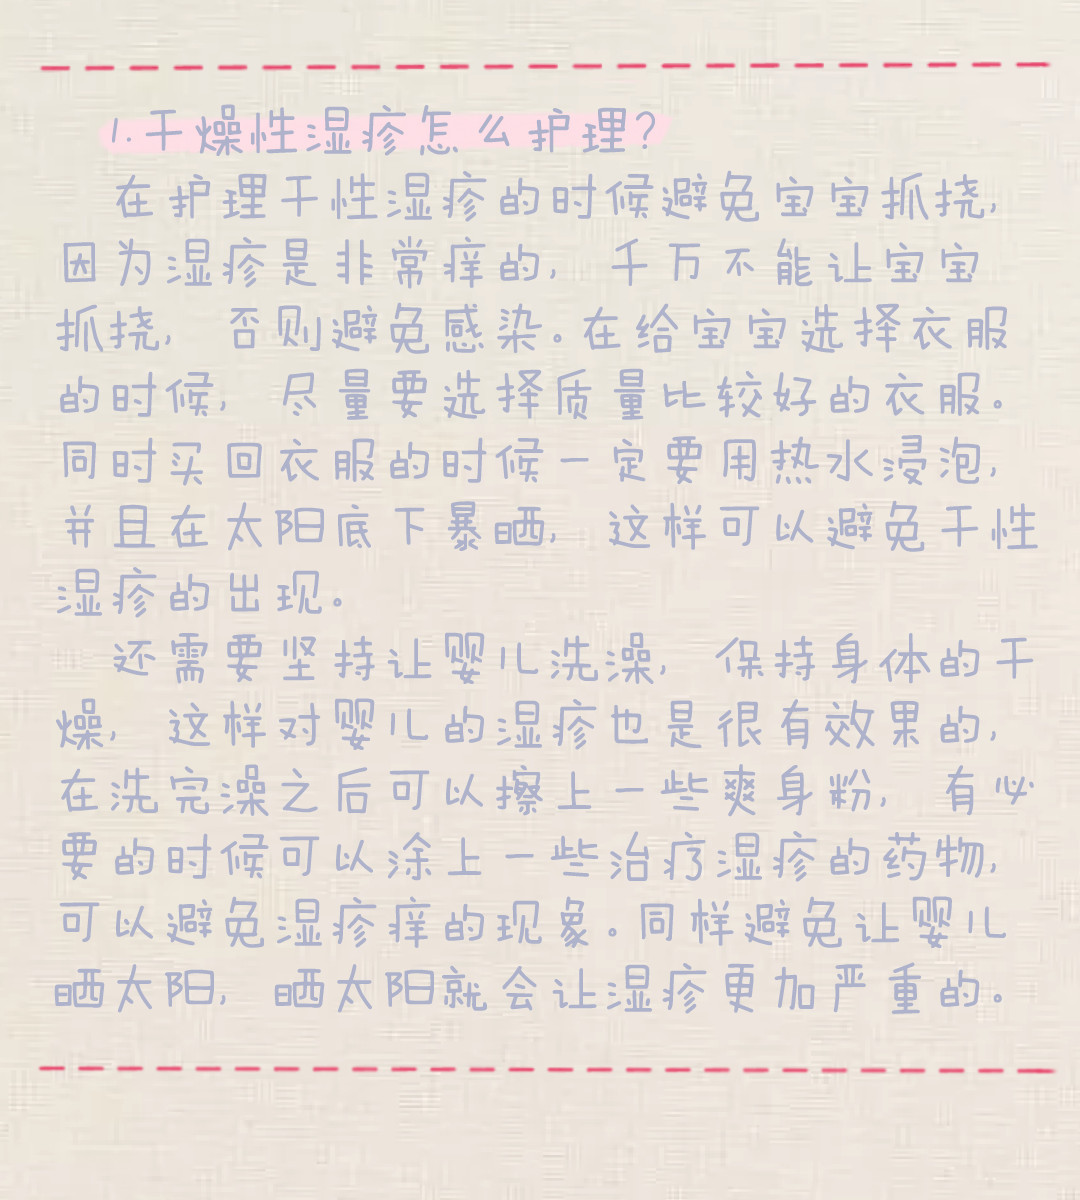 1.干燥性湿疹怎么护理?
在护理干性湿疹的时候避免宝宝抓挠,
因为湿疹是非常痒的, 千万不能让宝宝
抓挠, 否则避免感染。在给宝宝选择衣服
的时候, 尽量要选择质量比较好的衣服。
同时买回衣服的时候一定要用热水浸泡,
并且在太阳底下暴晒, 这样可以避免干性
湿疹的出现。
还需要坚持让婴儿洗澡, 保持身体的干
燥, 这样对婴儿的湿疹也是很有效果的,
在洗完澡之后可以擦上一些爽身粉, 有必
要的时候可以涂上一些治疗湿疹的药物,
可以避免湿疹痒的现象。同样避免让婴儿
晒太阳, 晒太阳就会让湿疹更加严重的。